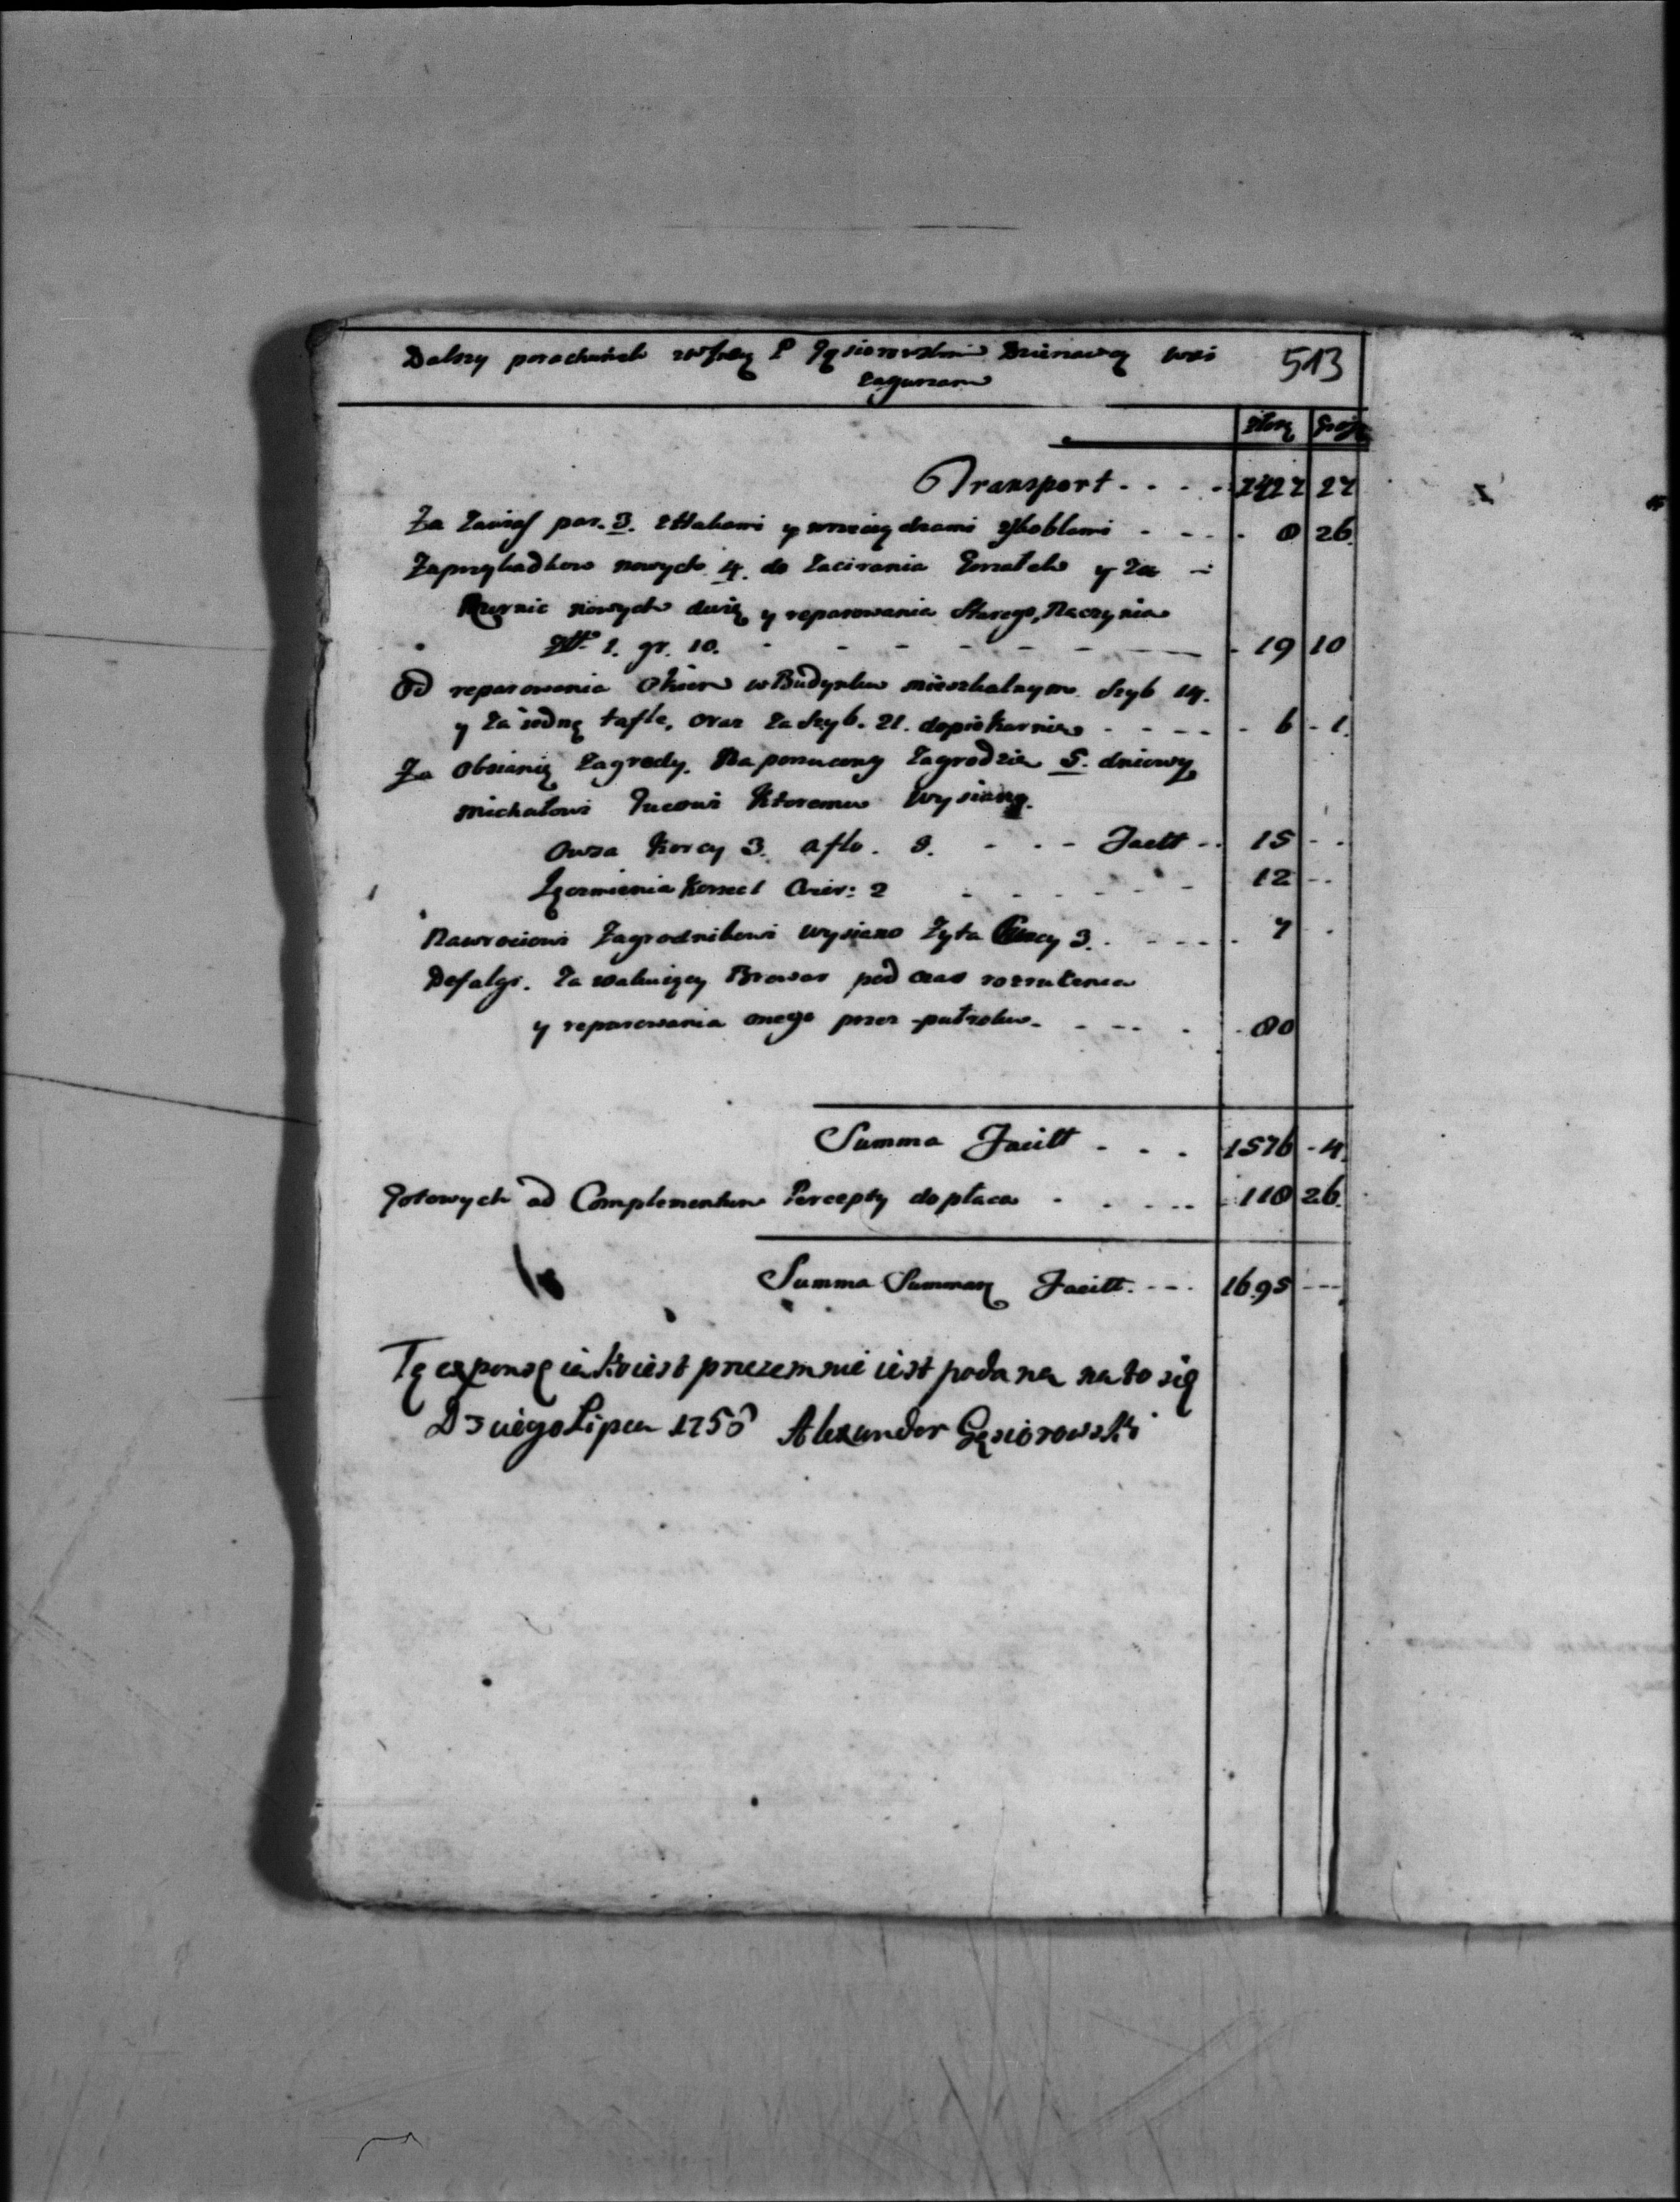 Dalszy porachunek P Gąsiorowskim Dzierzawcą wsi
Zagurzan
513
Złote Grosze
Transport . . . . 1427 27
Za Zawias par. 3. z Hakami y wrzeciądzami y skoblami . . . . 8 26.
Za przykadkow nowych 4. do Zacirania Gorzałek y Za
nowych dwie y reparowania Starego, Naczynia
Złł. 1. gr. 10. - - - - - - - 19 10
Od reparowania Okien w Budynku mieszkalnym Szyb 14.
y Za iedną tafle, oraz Za Szyb. 21. do piekarnie - - - - 6 - 1.
Za Obsianię Zagrody. Na porzucony Zagrodzie 5. dniowy
Michałowi Ktoremu Wysiano.
Owsa Korcy 3. a flo. 5. - - - Facit - . 15 - .
Jęczmienia Korzec 1 Cwier: 2 - - - - - - 12 - -
Nawrociowi Zagrodnikowi wysiano Zyta Cwiercy 3. - - - - - 7 .
Defalgr. Za wakuiący Browar pod czas rozrucenia
y reparowania onego przez - - - - . 80
Summa Facitt . . . 1576 - 4.
Gotowych ad Complementum Percepty dopłaca . . . - - - 118 26.
Summa Summarũ Facitt. - - - 1695 - - -
Tę expensę iako iest przezemnie iest podana na to się
Lipca 1758 Alexander Gąsiorowski